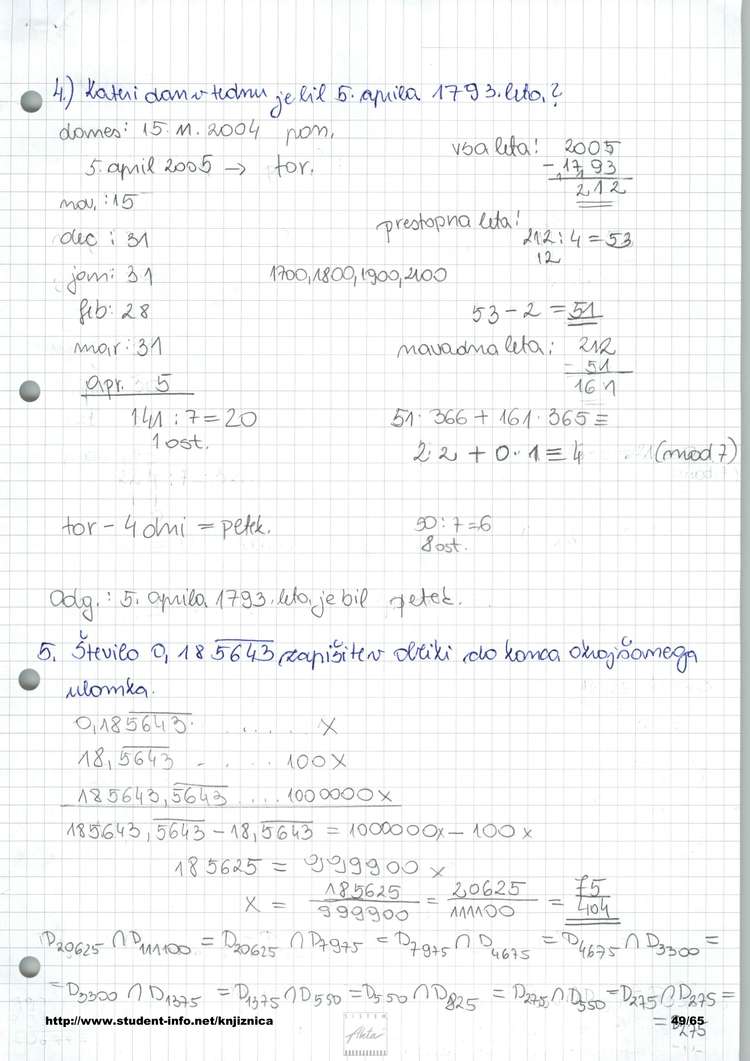 4.) Kateri dan v tednu je bil 5. aprila 1793. leto.?
domes: 15. 11. 2004 pon.
5. april 2005 → tor.
nov.: 15
dec : 31
jan: 31
feb: 28
mar: 31
apr. 5
141 : 7 = 20
1 ost.
vsa leta! 2005
- 1793
212
prestopna leta!
212 : 4 = 53
12
1700, 1800, 1900, 2100
53 - 2 = 51
navadna leta: 212
- 51
161
51 · 366 + 161 · 365 ≡
2·2 + 0·1 ≡ 4 (mod 7)
tor - 4 dni = petek.
50 : 7 = 6
8 ost.
Odg.: 5. aprila 1793. leta, je bil petek.
5. Število 0,18\overline{5643} zapišite v obliki do konca okrajšanega
ulomka.
0,18\overline{5643} ..... x
18,\overline{5643} ..... 100x
185643,\overline{5643} ... 1000000x
185643,\overline{5643} - 18,\overline{5643} = 1000000x - 100x
185625 = 999900x
x = 185625/999900 = 20625/111100 = 75/404
D20625 ∩ D111100 = D20625 ∩ D7975 = D7975 ∩ D4675 = D4675 ∩ D3300 =
= D3300 ∩ D1375 = D1375 ∩ D550 = D550 ∩ D825 = D275 ∩ D550 = D275 ∩ D275 =
= D275
http://www.student-info.net/knjiznica
49/65